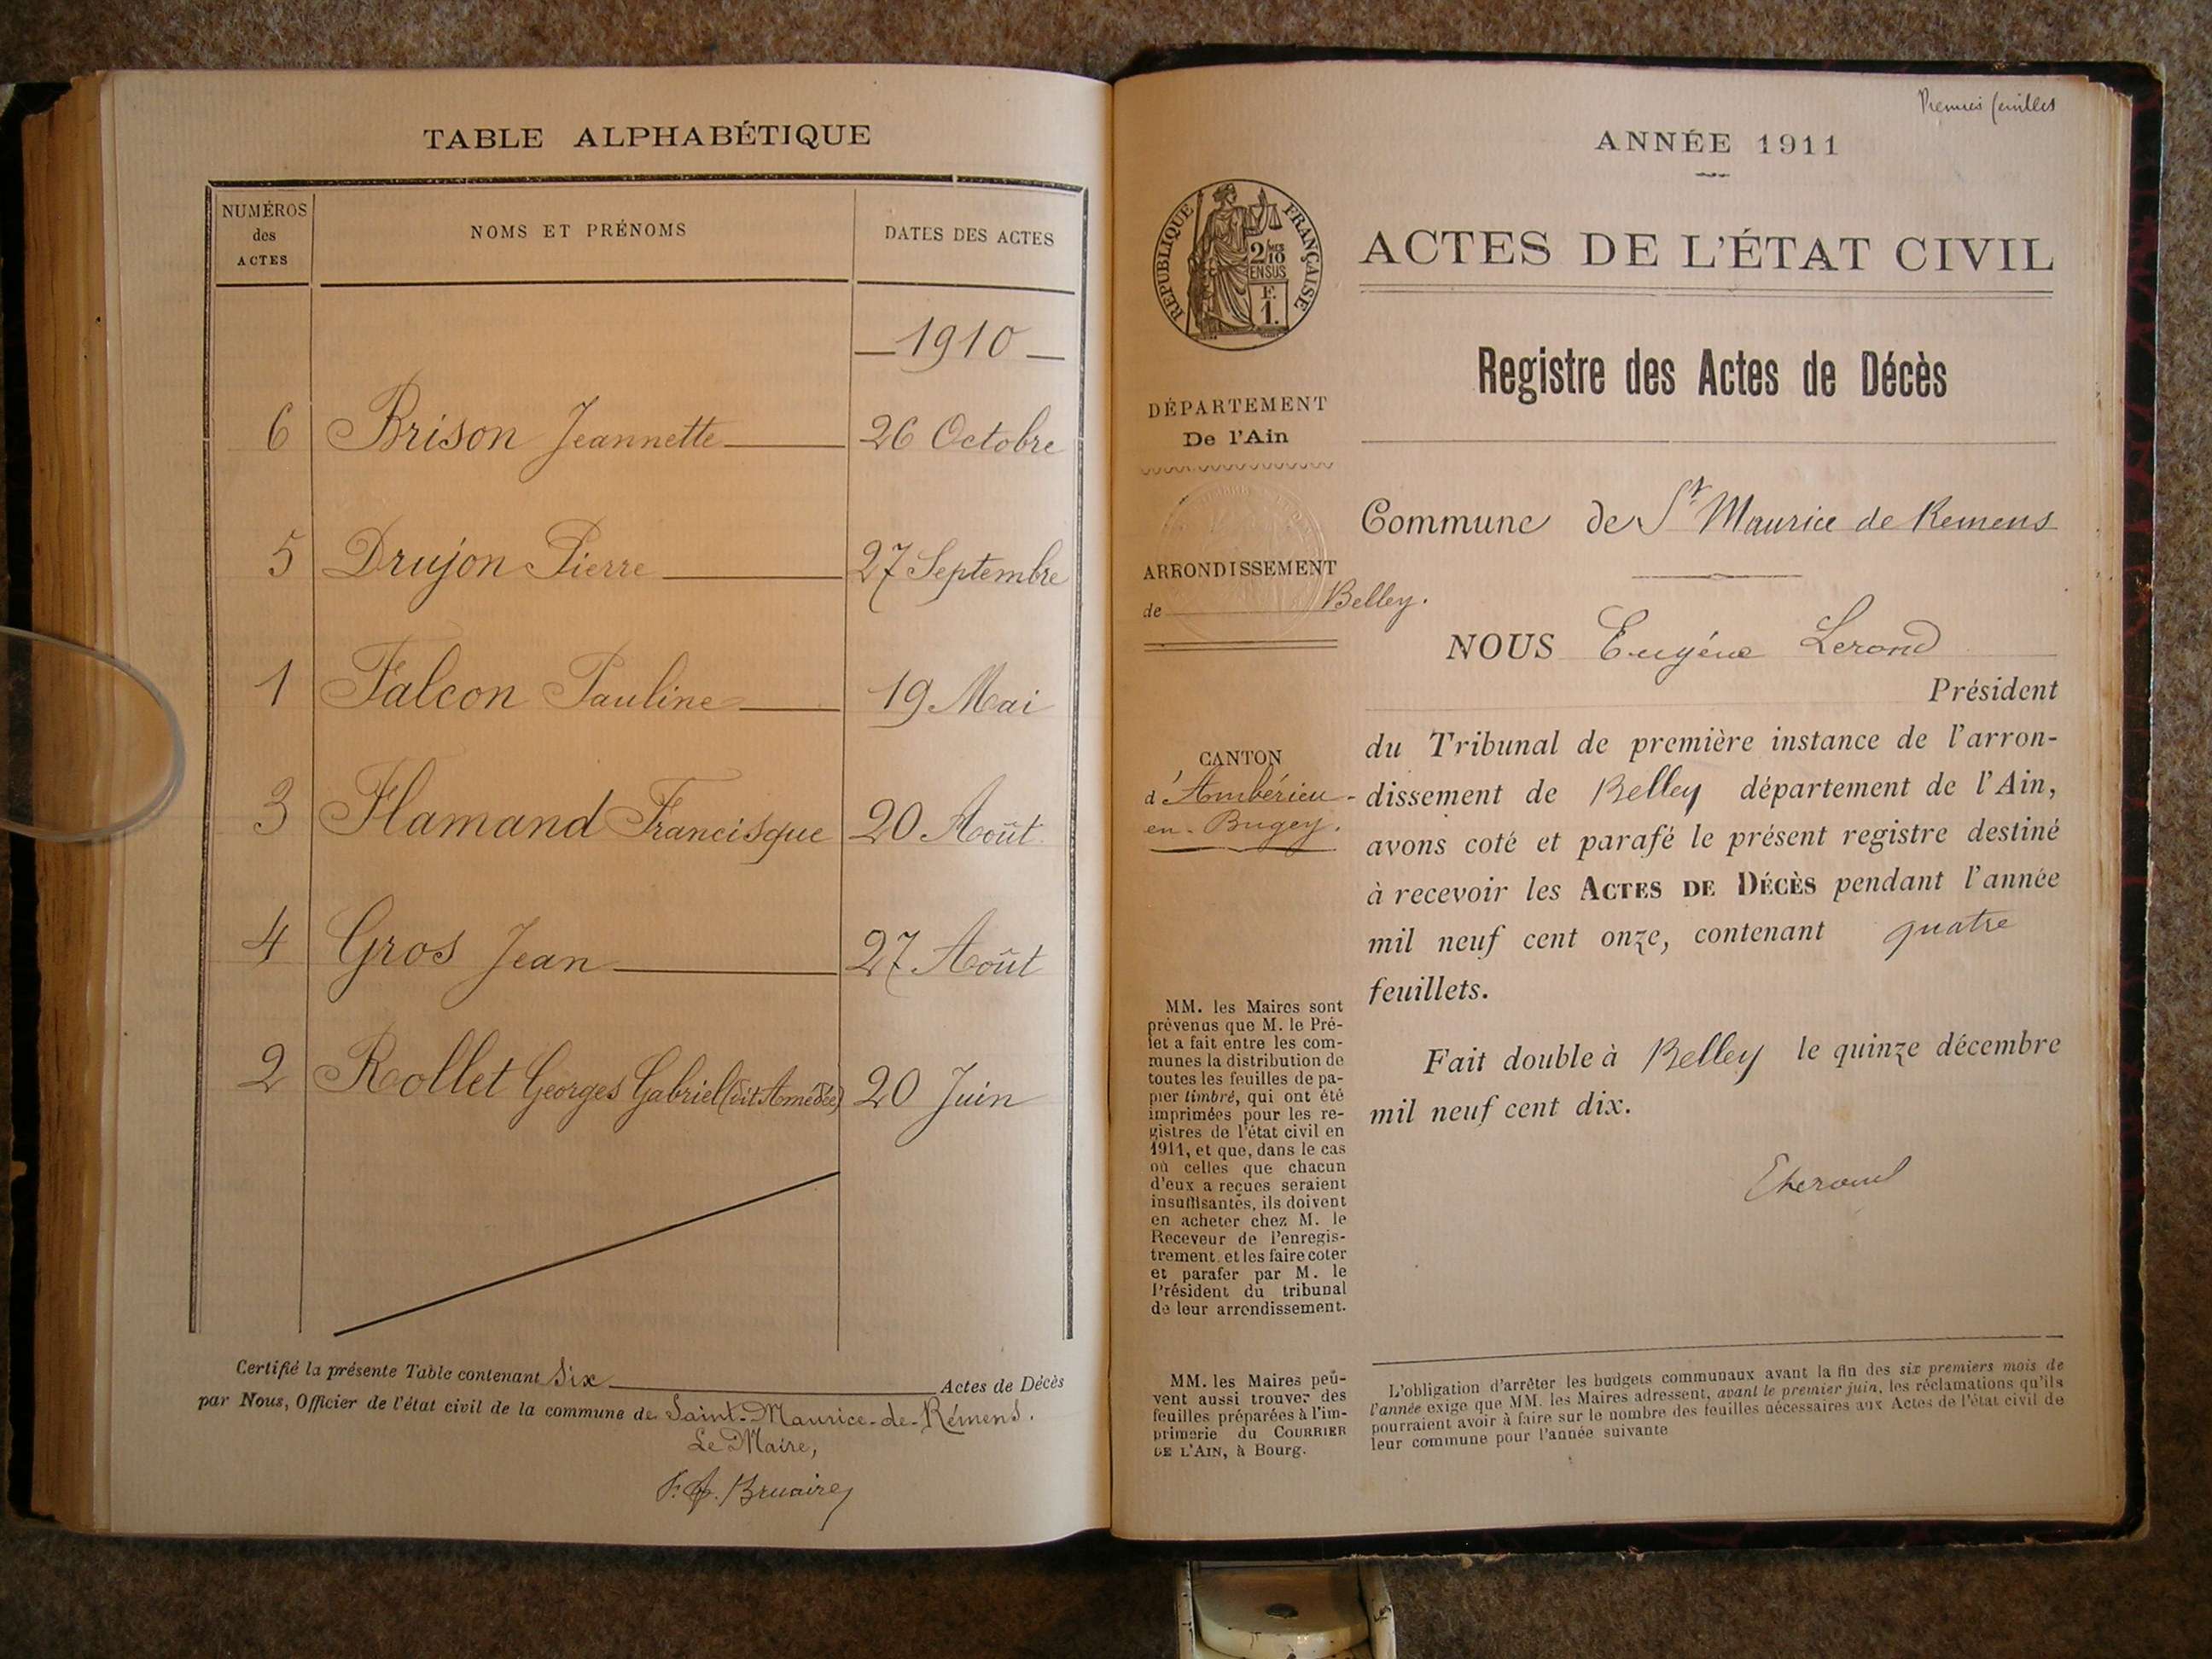 TABLE ALPHABÉTIQUE
NUMÉROS des ACTES
NOMS ET PRÉNOMS
DATES DES ACTES
1910
6 Brison Jeannette 26 Octobre
5 Drujon Pierre 27 Septembre
1 Falcon Pauline 19 Mai
3 Flamand Francisque 20 Août
4 Gros Jean 27 Août
2 Rollet Georges Gabriel (dit Amédée) 20 Juin
Certifié la présente Table contenant Six Actes de Décès
par Nous, Officier de l'état civil de la commune de Saint-Maurice-de-Rémens.
Le Maire,
Bruaire
Premier feuillet
ANNÉE 1911
RÉPUBLIQUE FRANÇAISE
2/10
EN SUS
F.
1.
ACTES DE L'ÉTAT CIVIL
Registre des Actes de Décès
DÉPARTEMENT
De l'Ain
ARRONDISSEMENT
de Belley.
CANTON
d'Ambérieu-
en-Bugey.
MM. les Maires sont
prévenus que M. le Pré-
fet a fait entre les com-
munes la distribution de
toutes les feuilles de pa-
pier timbré, qui ont été
imprimées pour les re-
gistres de l'état civil en
1911, et que, dans le cas
où celles que chacun
d'eux a reçues seraient
insuffisantes, ils doivent
en acheter chez M. le
Receveur de l'enregis-
trement et les faire coter
et parafer par M. le
Président du tribunal
de leur arrondissement.
MM. les Maires peu-
vent aussi trouver des
feuilles préparées à l'im-
primerie du COURRIER
DE L'AIN, à Bourg.
Commune de St Maurice de Remens
NOUS Eugène Lerond
Président
du Tribunal de première instance de l'arron-
dissement de Belley département de l'Ain,
avons coté et parafé le présent registre destiné
à recevoir les ACTES DE DÉCÈS pendant l'année
mil neuf cent onze, contenant quatre
feuillets.
Fait double à Belley le quinze décembre
mil neuf cent dix.
L'obligation d'arrêter les budgets communaux avant la fin des six premiers mois de
l'année exige que MM. les Maires adressent, avant le premier juin, les réclamations qu'ils
pourraient avoir à faire sur le nombre des feuilles nécessaires aux Actes de l'état civil de
leur commune pour l'année suivante